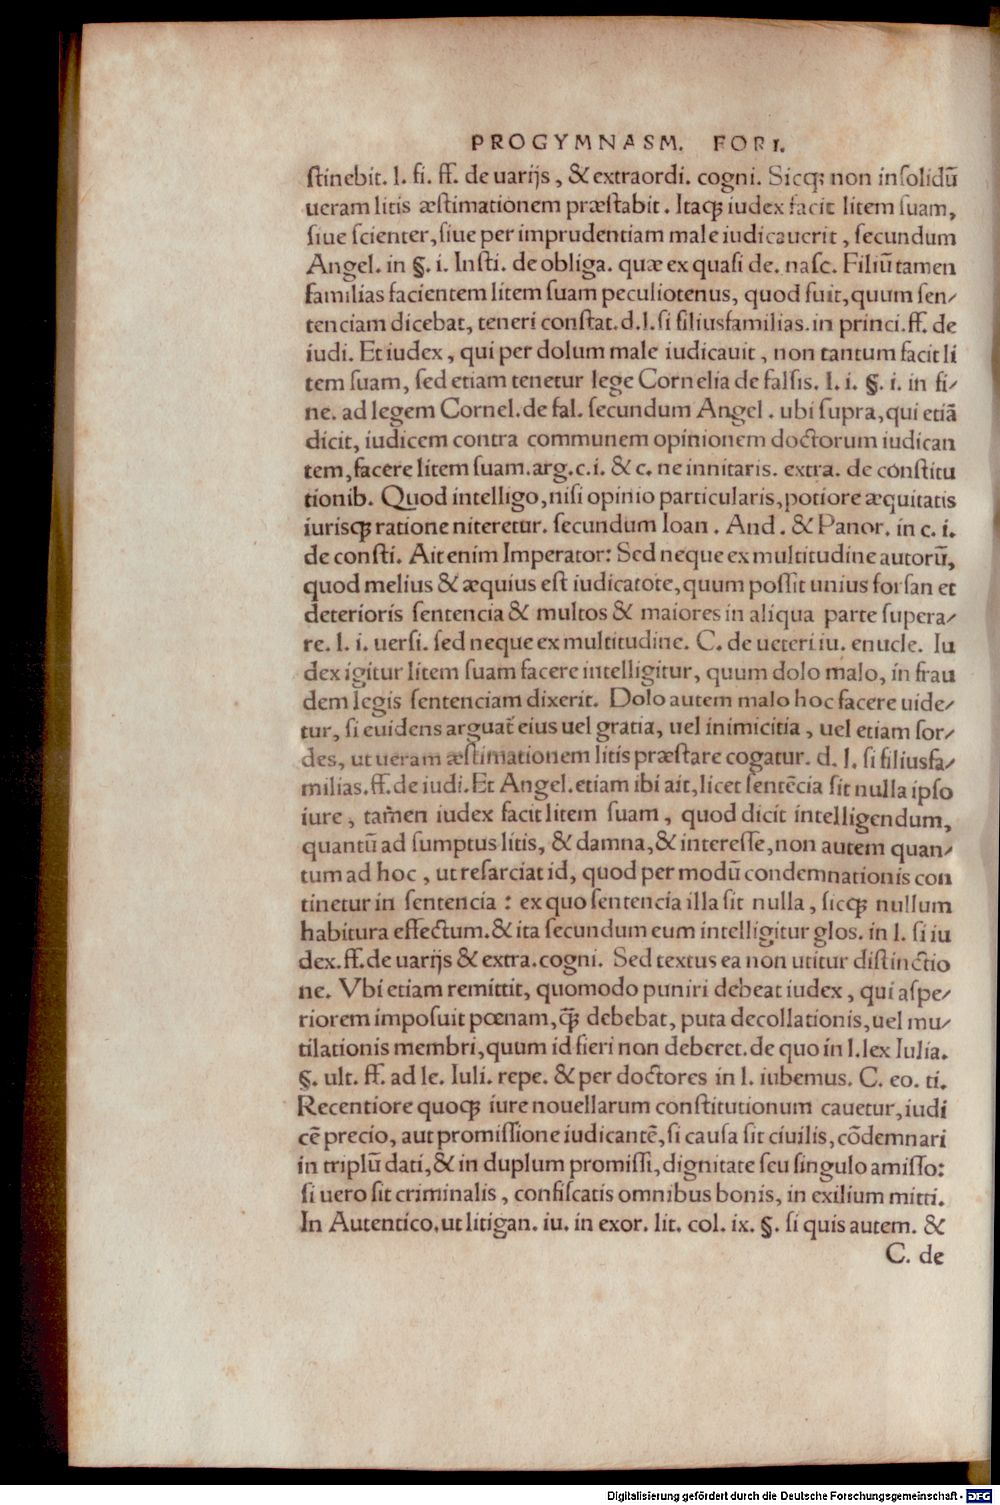 PROGYMNASM. FORI.
ſtinebit. l. fi. ff. de uarijs, & extraordi. cogni. Sicq; non inſolidū
ueram litis æſtimationem præſtabit. Itaq; iudex facit litem ſuam,
ſiue ſcienter, ſiue per imprudentiam male iudicauerit, ſecundum
Angel. in §. i. Inſti. de obliga. quæ ex quaſi de. naſc. Filiū tamen
familias facientem litem ſuam peculiotenus, quod fuit, quum ſen⸗
tenciam dicebat, teneri conſtat. d. l. ſi filiusfamilias. in princi. ff. de
iudi. Et iudex, qui per dolum male iudicauit, non tantum facit li
tem ſuam, ſed etiam tenetur lege Cornelia de falſis. l. i. §. i. in fi⸗
ne. ad legem Cornel. de fal. ſecundum Angel. ubi ſupra, qui etiā
dicit, iudicem contra communem opinionem doctorum iudican
tem, facere litem ſuam. arg. c. i. & c. ne innitaris. extra. de conſtitu
tionib. Quod intelligo, niſi opinio particularis, potiore æquitatis
iurisq; ratione niteretur. ſecundum Ioan. And. & Panor. in c. i.
de conſti. Ait enim Imperator: Sed neque ex multitudine autorū,
quod melius & æquius eſt iudicatote, quum poſſit unius forſan et
deterioris ſentencia & multos & maiores in aliqua parte ſupera⸗
re. l. i. uerſi. ſed neque ex multitudine. C. de ueteri iu. enucle. Iu
dex igitur litem ſuam facere intelligitur, quum dolo malo, in frau
dem legis ſentenciam dixerit. Dolo autem malo hoc facere uide⸗
tur, ſi euidens arguat̃ eius uel gratia, uel inimicitia, uel etiam ſor⸗
des, ut ueram æſtimationem litis præſtare cogatur. d. l. ſi filiusfa⸗
milias. ff. de iudi. Et Angel. etiam ibi ait, licet ſentēcia ſit nulla ipſo
iure, tam̃en iudex facit litem ſuam, quod dicit intelligendum,
quantū ad ſumptus litis, & damna, & intereſſe, non autem quan⸗
tum ad hoc, ut reſarciat id, quod per modū condemnationis con
tinetur in ſentencia: ex quo ſentencia illa ſit nulla, ſicq; nullum
habitura effectum. & ita ſecundum eum intelligitur glos. in l. ſi iu
dex. ff. de uarijs & extra. cogni. Sed textus ea non utitur diſtinctio
ne. Vbi etiam remittit, quomodo puniri debeat iudex, qui aſpe⸗
riorem impoſuit pœnam, q̃; debebat, puta decollationis, uel mu⸗
tilationis membri, quum id fieri non deberet. de quo in l. lex Iulia.
§. ult. ff. ad le. Iuli. repe. & per doctores in l. iubemus. C. eo. ti.
Recentiore quoq; iure nouellarum conſtitutionum cauetur, iudi
cē precio, aut promiſſione iudicantē, ſi cauſa ſit ciuilis, cōdemnari
in triplū dati, & in duplum promiſſi, dignitate ſeu ſingulo amiſſo:
ſi uero ſit criminalis, confiſcatis omnibus bonis, in exilium mitti.
In Autentico. ut litigan. iu. in exor. lit. col. ix. §. ſi quis autem. &
C. de
Digitalisierung gefördert durch die Deutsche Forschungsgemeinschaft - DFG